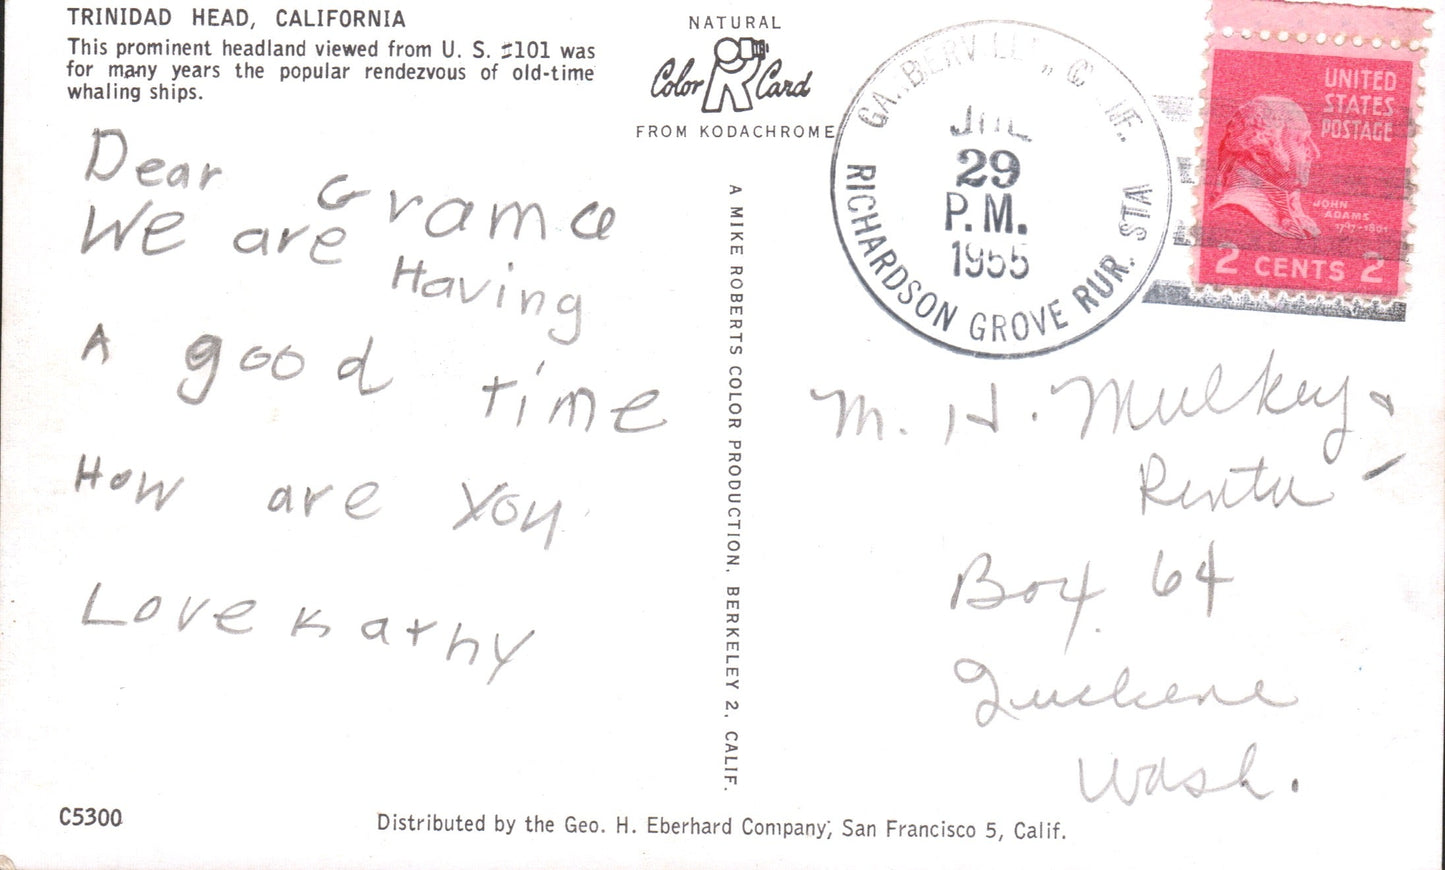 TRINIDAD HEAD, CALIFORNIA
This prominent headland viewed from U. S. #101 was
for many years the popular rendezvous of old-time
whaling ships.
NATURAL
Color Card
FROM KODACHROME
Dear Grama
We are Having
A good time
How are you
Love Kathy
A MIKE ROBERTS COLOR PRODUCTION, BERKELEY 2, CALIF.
JUL
29
P.M.
1955
RICHARDSON GROVE RUR. STA
UNITED
STATES
POSTAGE
JOHN
ADAMS
1797-1801
2 CENTS 2
M. H. Mulkey
Box 64
Wash.
C5300
Distributed by the Geo. H. Eberhard Company, San Francisco 5, Calif.